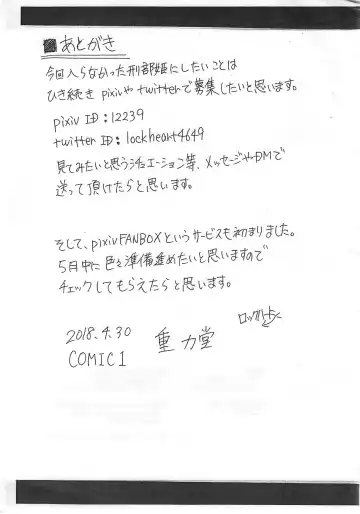 ■あとがき
今回入らなかった刑部姫にしたいことは
ひき続き pixivや twitterで募集したいと思います。
pixiv ID:12239
twitter ID:lockheart4649
見てみたいと思うシチュエーション等、メッセージやDMで
送って頂けたらと思います。
そして、pixivFANBOXというサービスも初まりました。
5月中に色々準備進めたいと思いますので
チェックしてもらえたらと思います。
2018.4.30
COMIC1
重力堂